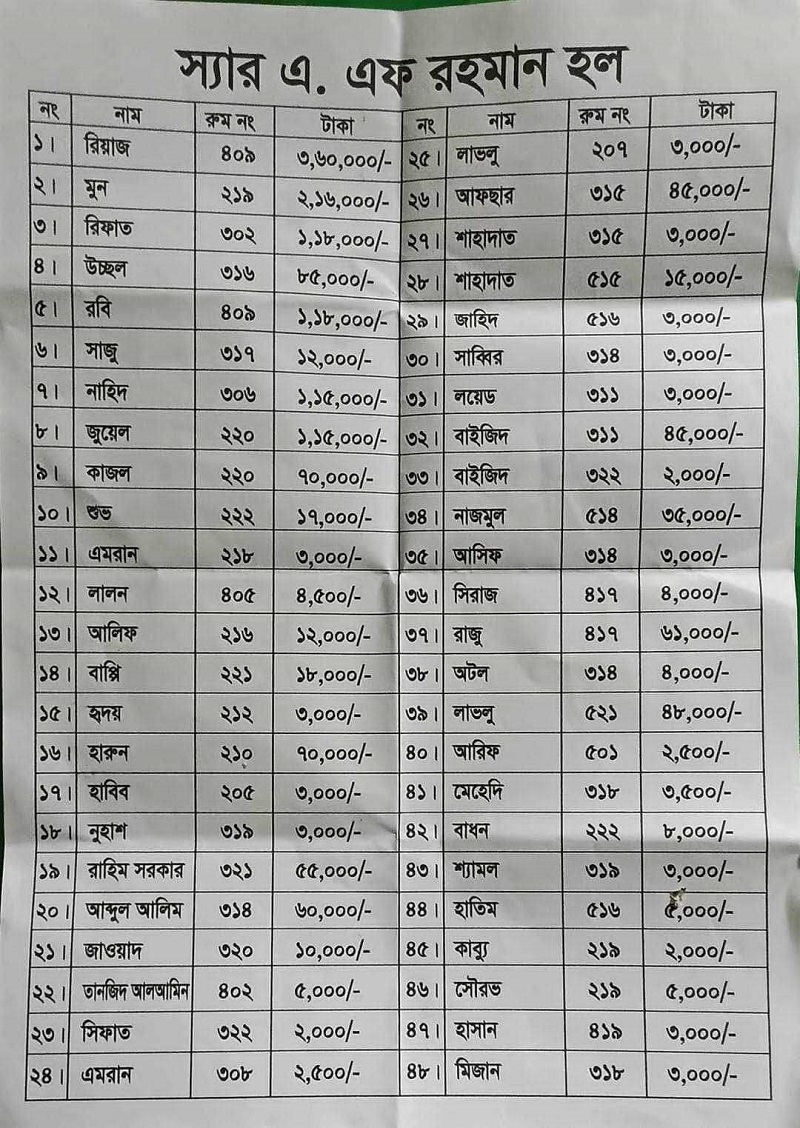 স্যার এ. এফ রহমান হল
নং নাম রুম নং টাকা নং নাম রুম নং টাকা
১। রিয়াজ ৪০৯ ৩,৬০,০০০/- ২৫। লাভলু ২০৭ ৩,০০০/-
২। মুন ২১৯ ২,১৬,০০০/- ২৬। আফছার ৩১৫ ৪৫,০০০/-
৩। রিফাত ৩০২ ১,১৮,০০০/- ২৭। শাহাদাত ৩১৫ ৩,০০০/-
৪। উচ্ছল ৩১৬ ৮৫,০০০/- ২৮। শাহাদাত ৫১৫ ১৫,০০০/-
৫। রবি ৪০৯ ১,১৮,০০০/- ২৯। জাহিদ ৫১৬ ৩,০০০/-
৬। সাজু ৩১৭ ১২,০০০/- ৩০। সাব্বির ৩১৪ ৩,০০০/-
৭। নাহিদ ৩০৬ ১,১৫,০০০/- ৩১। লয়েড ৩১১ ৩,০০০/-
৮। জুয়েল ২২০ ১,১৫,০০০/- ৩২। বাইজিদ ৩১১ ৪৫,০০০/-
৯। কাজল ২২০ ৭০,০০০/- ৩৩। বাইজিদ ৩২২ ২,০০০/-
১০। শুভ ২২২ ১৭,০০০/- ৩৪। নাজমুল ৫১৪ ৩৫,০০০/-
১১। এমরান ২১৮ ৩,০০০/- ৩৫। আসিফ ৩১৪ ৩,০০০/-
১২। লালন ৪০৫ ৪,৫০০/- ৩৬। সিরাজ ৪১৭ ৪,০০০/-
১৩। আলিফ ২১৬ ১২,০০০/- ৩৭। রাজু ৪১৭ ৬১,০০০/-
১৪। বাপ্পি ২২১ ১৮,০০০/- ৩৮। অটল ৩১৪ ৪,০০০/-
১৫। হৃদয় ২১২ ৩,০০০/- ৩৯। লাভলু ৫২১ ৪৮,০০০/-
১৬। হারুন ২১০ ৭০,০০০/- ৪০। আরিফ ৫০১ ২,৫০০/-
১৭। হাবিব ২০৫ ৩,০০০/- ৪১। মেহেদি ৩১৮ ৩,৫০০/-
১৮। নুহাশ ৩১৯ ৩,০০০/- ৪২। বাধন ২২২ ৮,০০০/-
১৯। রাহিম সরকার ৩২১ ৫৫,০০০/- ৪৩। শ্যামল ৩১৯ ৩,০০০/-
২০। আব্দুল আলিম ৩১৪ ৬০,০০০/- ৪৪। হাতিম ৫১৬ ৫,০০০/-
২১। জাওয়াদ ৩২০ ১০,০০০/- ৪৫। কাব্যু ২১৯ ২,০০০/-
২২। তানজিদ আলআমিন ৪০২ ৫,০০০/- ৪৬। সৌরভ ২১৯ ৫,০০০/-
২৩। সিফাত ৩২২ ২,০০০/- ৪৭। হাসান ৪১৯ ৩,০০০/-
২৪। এমরান ৩০৮ ২,৫০০/- ৪৮। মিজান ৩১৮ ৩,০০০/-